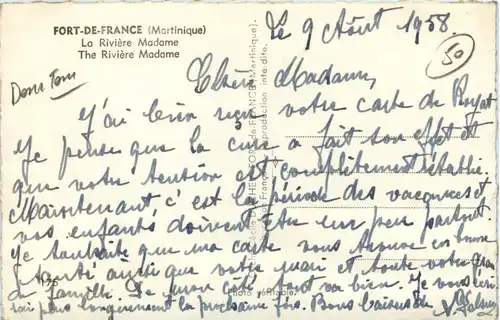 FORT-DE-FRANCE (Martinique)
La Rivière Madame
The Rivière Madame
Dom Tom
50
Le 9 Août 1958
Chère Madame,
J'ai bien reçu votre carte de Royat
Je pense que la cure a fait son effet et
que votre tension est complètement rétablie.
Maintenant c'est la période des vacances et
vos enfants doivent être un peu partout.
Je souhaite que ma carte vous trouve en bonne
santé ainsi que votre mari et toute votre
famille. De mon côté tout va bien. Je vous
plus longuement la prochaine fois. Bons baisers
Photo véritable
reproduction interdite.